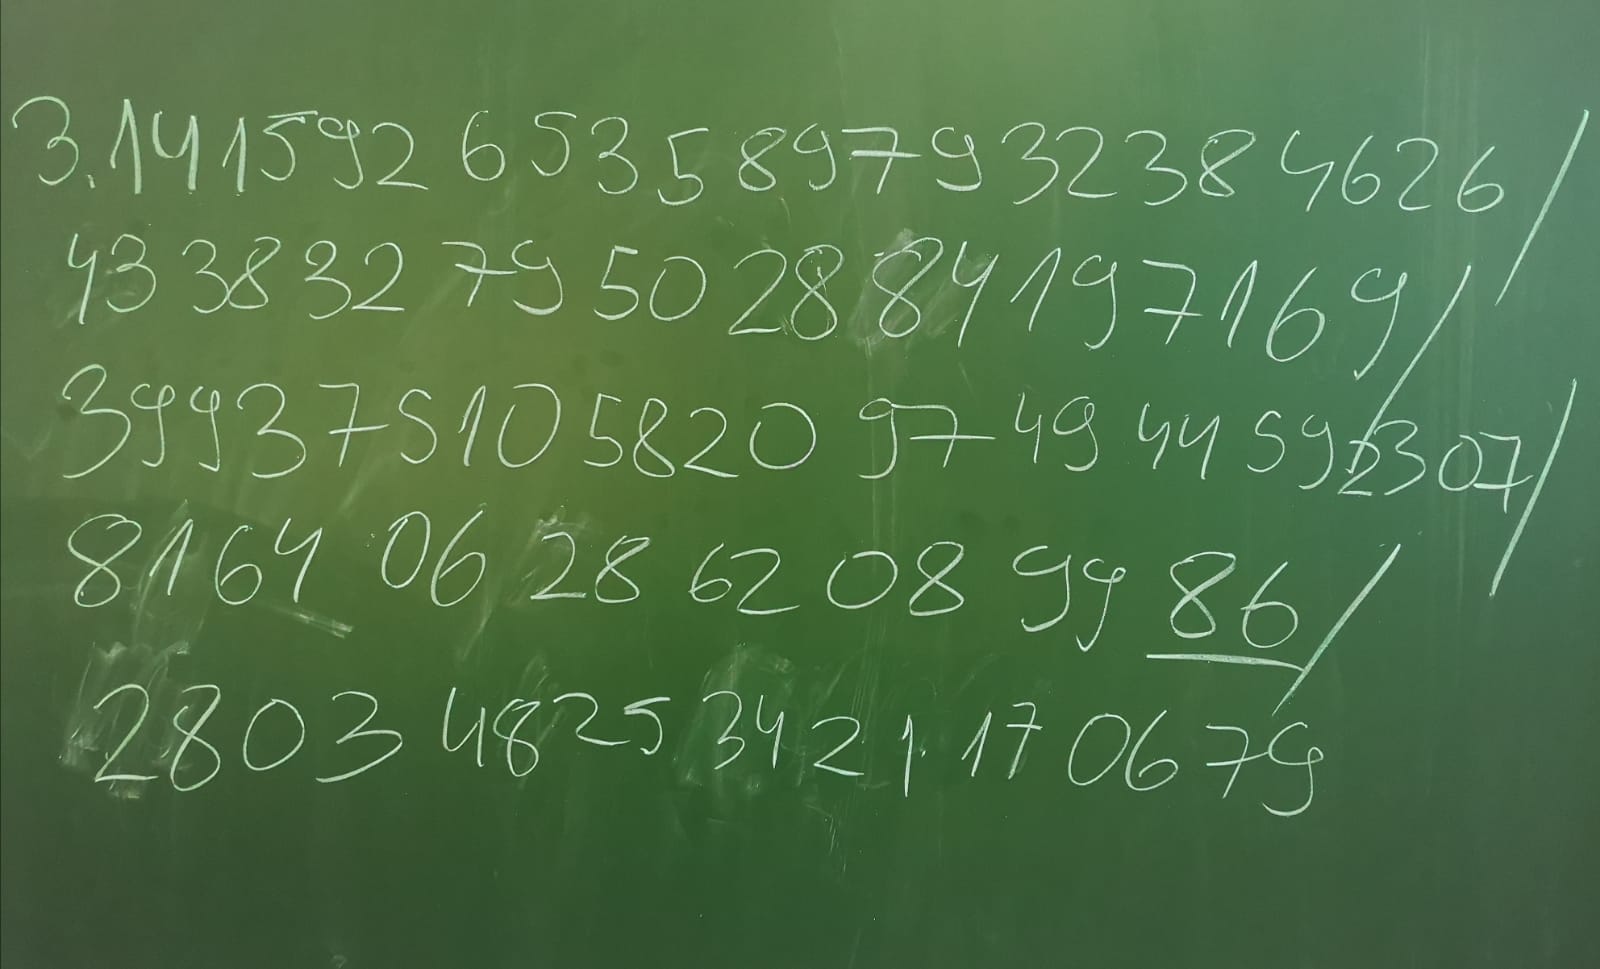 3.141592 6 535 8979 3238 4626/
433832 79 50 288419 7169/
39937510 5820 97 49 44 592307/
8164 06 28 62 08 99 86/
2803 4825 3421 17 0679